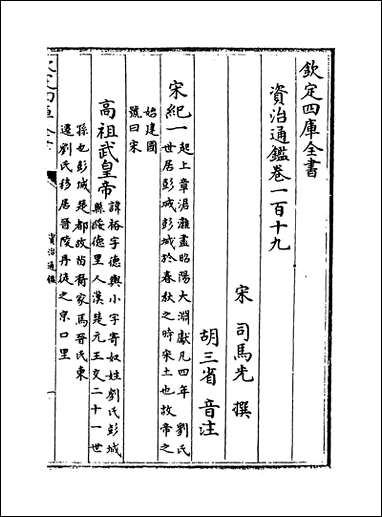 欽定四庫全書
資治通鑑卷一百十九
宋 司馬光 撰
胡三省 音注
宋紀一
起上章涒灘盡昭陽大淵獻凡四年 劉氏
世居彭城彭城於春秋之時宋土也故帝之
始建國
號曰宋
高祖武皇帝
諱裕字德輿小字寄奴姓劉氏彭城
縣綏德里人漢楚元王交二十一世
孫也彭城楚都故苗裔家焉晉氏東
遷劉氏移居晉陵丹徒之京口里
資治通鑑